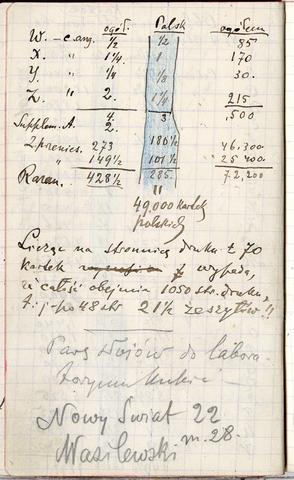 ogół. Polsk ogółem
W. – c. ang. 1/2 1/2 85
X. " 1 1/4 1 170
Y. " 1/4 1/8 30.
Z. " 2. 1 1/4 215
4. 3 ,500
Supplem. A. 2.
Z przenies. 273 180 1/2 46.300
" 149 1/2 101 1/2 25 400
Razem. 428 1/2 285. 72,200
"
49.000 kartek
polskich
Licząc na stronnicę druku z 70
kartek wypada,
w całość obejmie 1050 str. druku,
t. j. po 48 str 21 1/2 zeszytów!!
Parę słojów do labora-
Nowy Świat 22
Wasilewski m. 28.